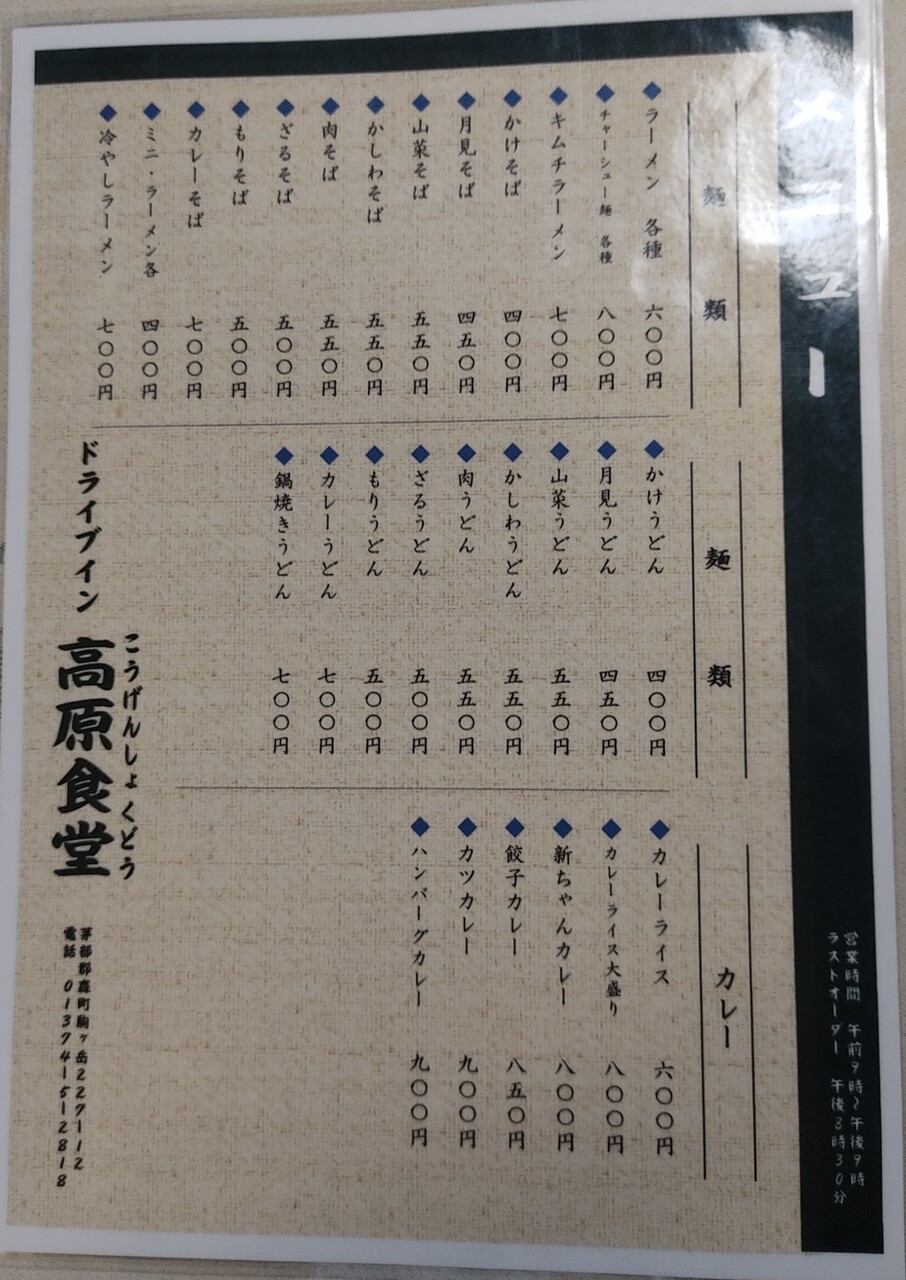 メニュー
営業時間 午前9時～午後9時
ラストオーダー 午後8時30分
麺類
◆ラーメン 各種 六〇〇円
◆チャーシュー麺 各種 八〇〇円
◆キムチラーメン 七〇〇円
◆かけそば 四〇〇円
◆月見そば 四五〇円
◆山菜そば 五五〇円
◆かしわそば 五五〇円
◆肉そば 五五〇円
◆ざるそば 五〇〇円
◆もりそば 五〇〇円
◆カレーそば 七〇〇円
◆ミニ・ラーメン各 四〇〇円
◆冷やしラーメン 七〇〇円
麺類
◆かけうどん 四〇〇円
◆月見うどん 四五〇円
◆山菜うどん 五五〇円
◆かしわうどん 五五〇円
◆肉うどん 五五〇円
◆ざるうどん 五〇〇円
◆もりうどん 五〇〇円
◆カレーうどん 七〇〇円
◆鍋焼きうどん 七〇〇円
カレー
◆カレーライス 六〇〇円
◆カレーライス大盛り 八〇〇円
◆新ちゃんカレー 八〇〇円
◆餃子カレー 八五〇円
◆カツカレー 九〇〇円
◆ハンバーグカレー 九〇〇円
こうげんしょくどう
ドライブイン 高原食堂
茅部郡森町駒ヶ岳227-12
電話 01374-5-2818